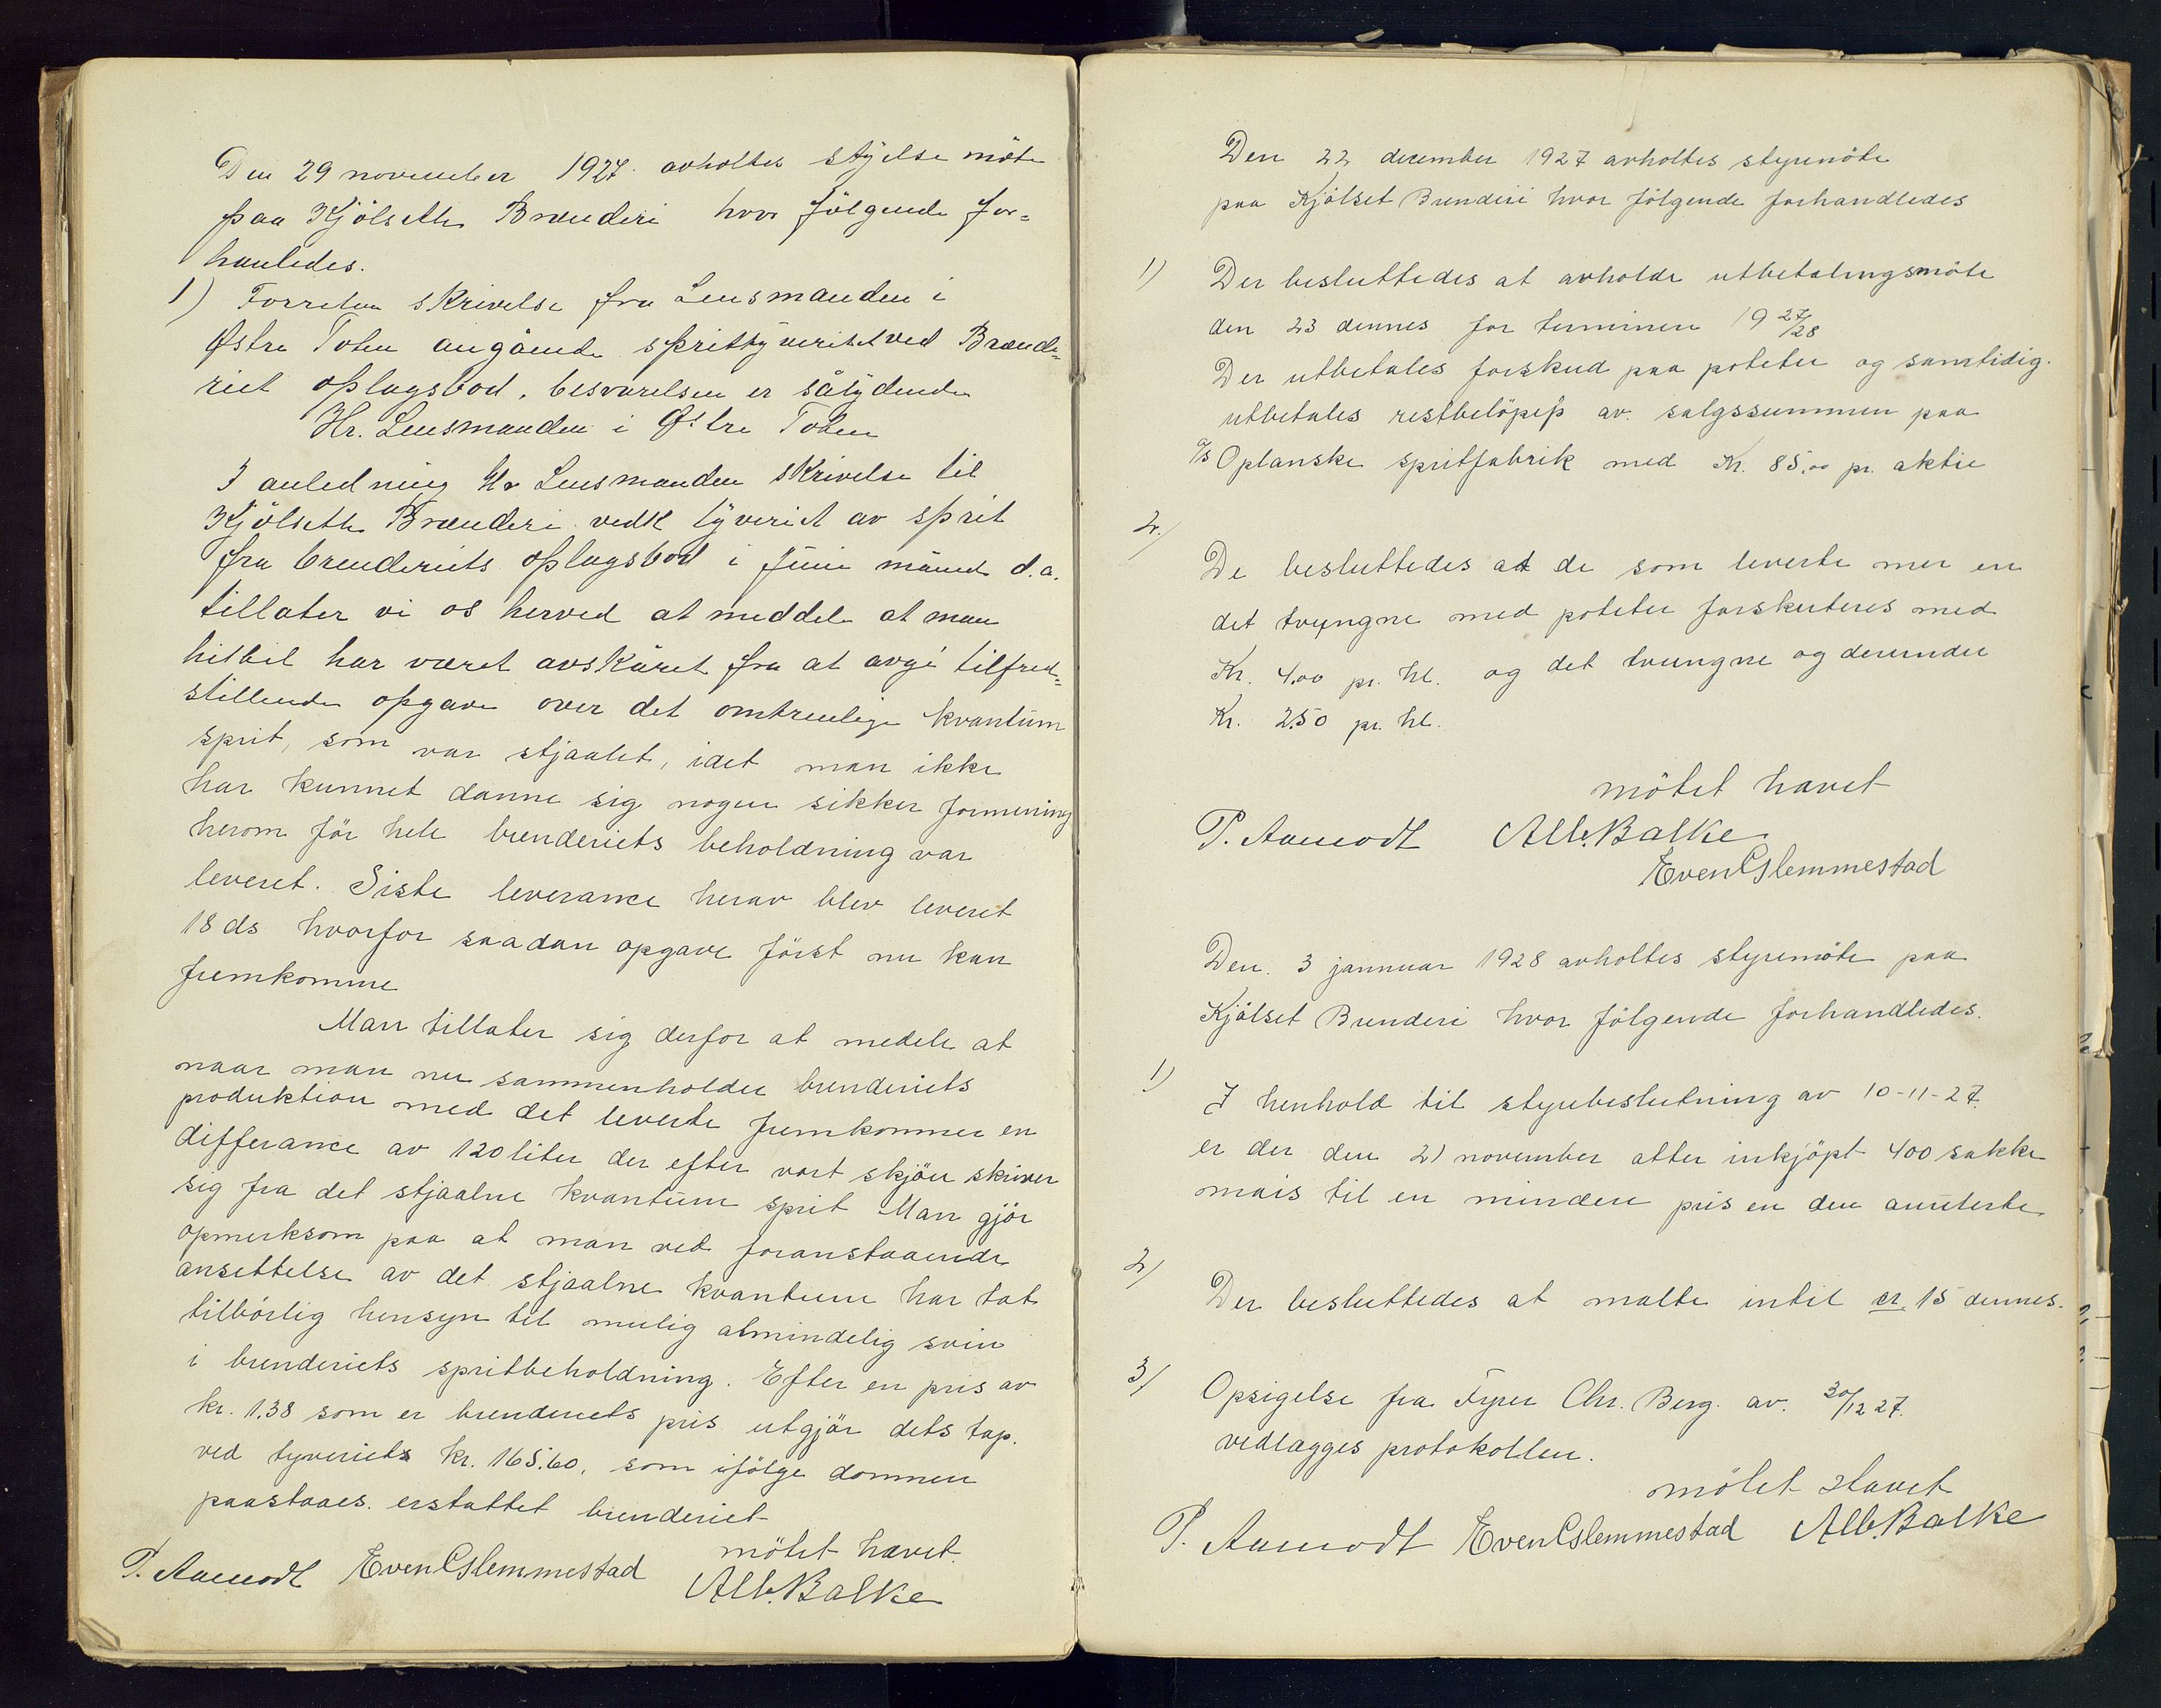 Den 29 november 1927. avholtes styelse möte
paa Kjölseth Brænderi hvor fölgende for=
hanledes.
1) Forrelaa skrivelse fra Lensmanden i
Østre Toten angående sprittyveriet ved Brænde=
riet oplagsbod, besvarelsen er sålydende
Hr. Lensmanden i Østre Toten
I anledning Hr Lensmanden skrivelse til
Kjölseth Brænderi vedk tyveriet av sprit
fra brenderiets oplagsbod i Juni måned d.a.
tillater vi os herved at meddele at man
hittil har været avskåret fra at avgi tilfred=
stillende opgave over det omtrenlige kvantum
sprit, som var stjaalet, idet man ikke
har kunnet danne sig nogen sikker formening
herom för hele brenderiets beholdning var
leveret. Siste leverance herav blev leveret
18 ds hvorfor saadan opgave först nu kan
fremkomme
Man tillater sig derfor at medele at
naar man nu sammenholder brenderiets
produktion med det leverte fremkommer en
differance av 120 liter der efter vort skjön skriver
sig fra det stjaalne kvantum sprit Man gjör
opmerksom paa at man ved foranstaaende
ansettelse av det stjaalne kvantum har tat
tilbörlig hensyn til mulig almindelig svin
i brenderiets spritbeholdning. Efter en pris av
kr. 1.38 som er brenderiets pris utgjör dets tap.
ved tyveriets kr. 165.60, som ifölge dommen
paastaaes. erstattet brenderiet
mötet hævet.
P. Aamodt Even Glemmestad
Alb. Balke
Den 22 december 1927 avholtes styremöte
paa Kjölset Brenderi hvor fölgende forhandledes
1) Der besluttedes at avholde utbetalingsmöte
den 23 dennes for terminen 19 27/28
Der utbetales forskud paa poteter og samtidig.
utbetales restbelöpet av. salgssummen paa
a/s Oplanske spritfabrik med Kr. 85.00 pr. aktie
2.)
De besluttedes at de som leverte mer en
det tvungne med poteter forskuteres med
Kr. 4.00 pr. hl. og det tvungne og derunder
Kr. 2.50 pr. hl.
mötet hævet
P. Aamodt Alb. Balke
Even Glemmestad
Den. 3 jannuar 1928 avholtes styremöte paa
Kjölset Brenderi hvor fölgende forhandledes.
1)
I henhold til styrebeslutning av 10-11-27.
er der den 21 november atter inkjöpt 400 sakke
mais til en mindere pris en den anviterte
2)
Der besluttedes at malte intil cr. 15 dennes.
3)
Opsigelse fra Fyrer Chr. Berg. av. 30/12 27.
vedlægges protokollen.
mötet hævet
P. Aamodt Even Glemmestad Alb. Balke